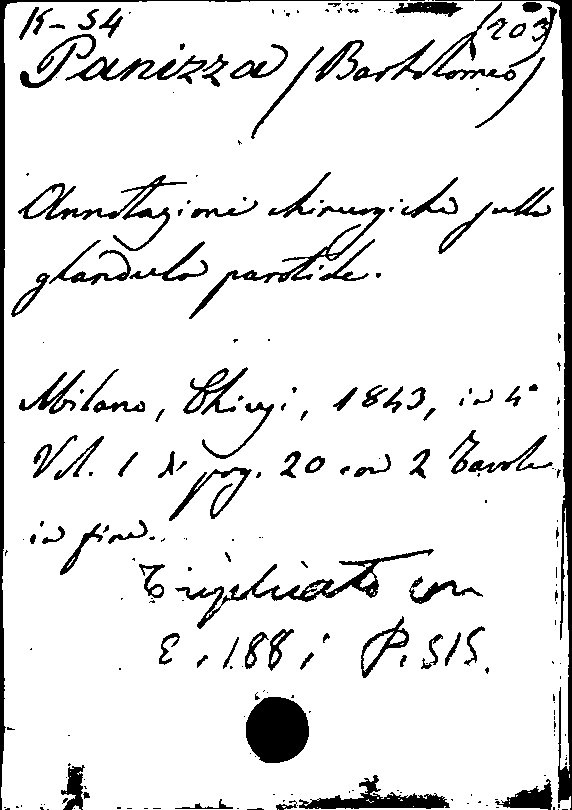 K-54 (203)
Panizza (Bartolomeo)
Annotazioni chirurgiche sulla
glandula parotide.
Milano, Chiusi, 1843, in 4°
Vol. 1 di pag. 20 con 2 Tavole
in fine.
Triplicato con
E. 188; P. 515.